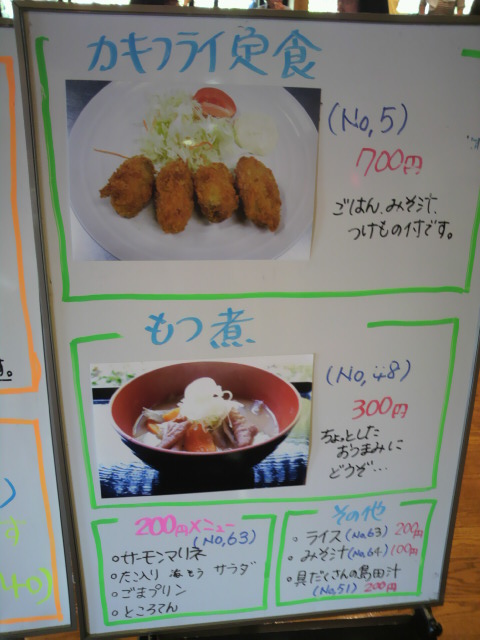 カキフライ定食
(No,5)
700円
ごはん、みそ汁、
つけもの付です。
もつ煮
(No,48)
300円
ちょっとした
おつまみに
どうぞ…
200円メニュー
(No,63)
・サーモンマリネ
・たこ入り 海そう サラダ
・ごまプリン
・ところてん
その他
・ライス(No,63) 200円
・みそ汁(No,64) 100円
・具だくさんの島田汁
(No,51) 200円
す。